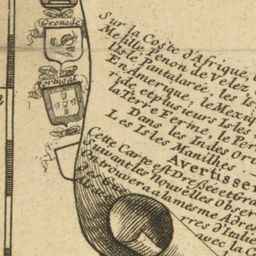 Grenade
Portugal
Sur la Coste d'Afrique,
Melille, Penon de Velez
Isle Pantalarée, les Is
En Amerique, le Mexiq
ide, et plusieurs Isles
la Terre Ferme, le Per
Dans les Indes Or
Les Isles Manilhes
Avertisse
Cette Carte est Dressée
les Nouvelles Obser
trouvera la mesme Adres
d'Italie
avec la C